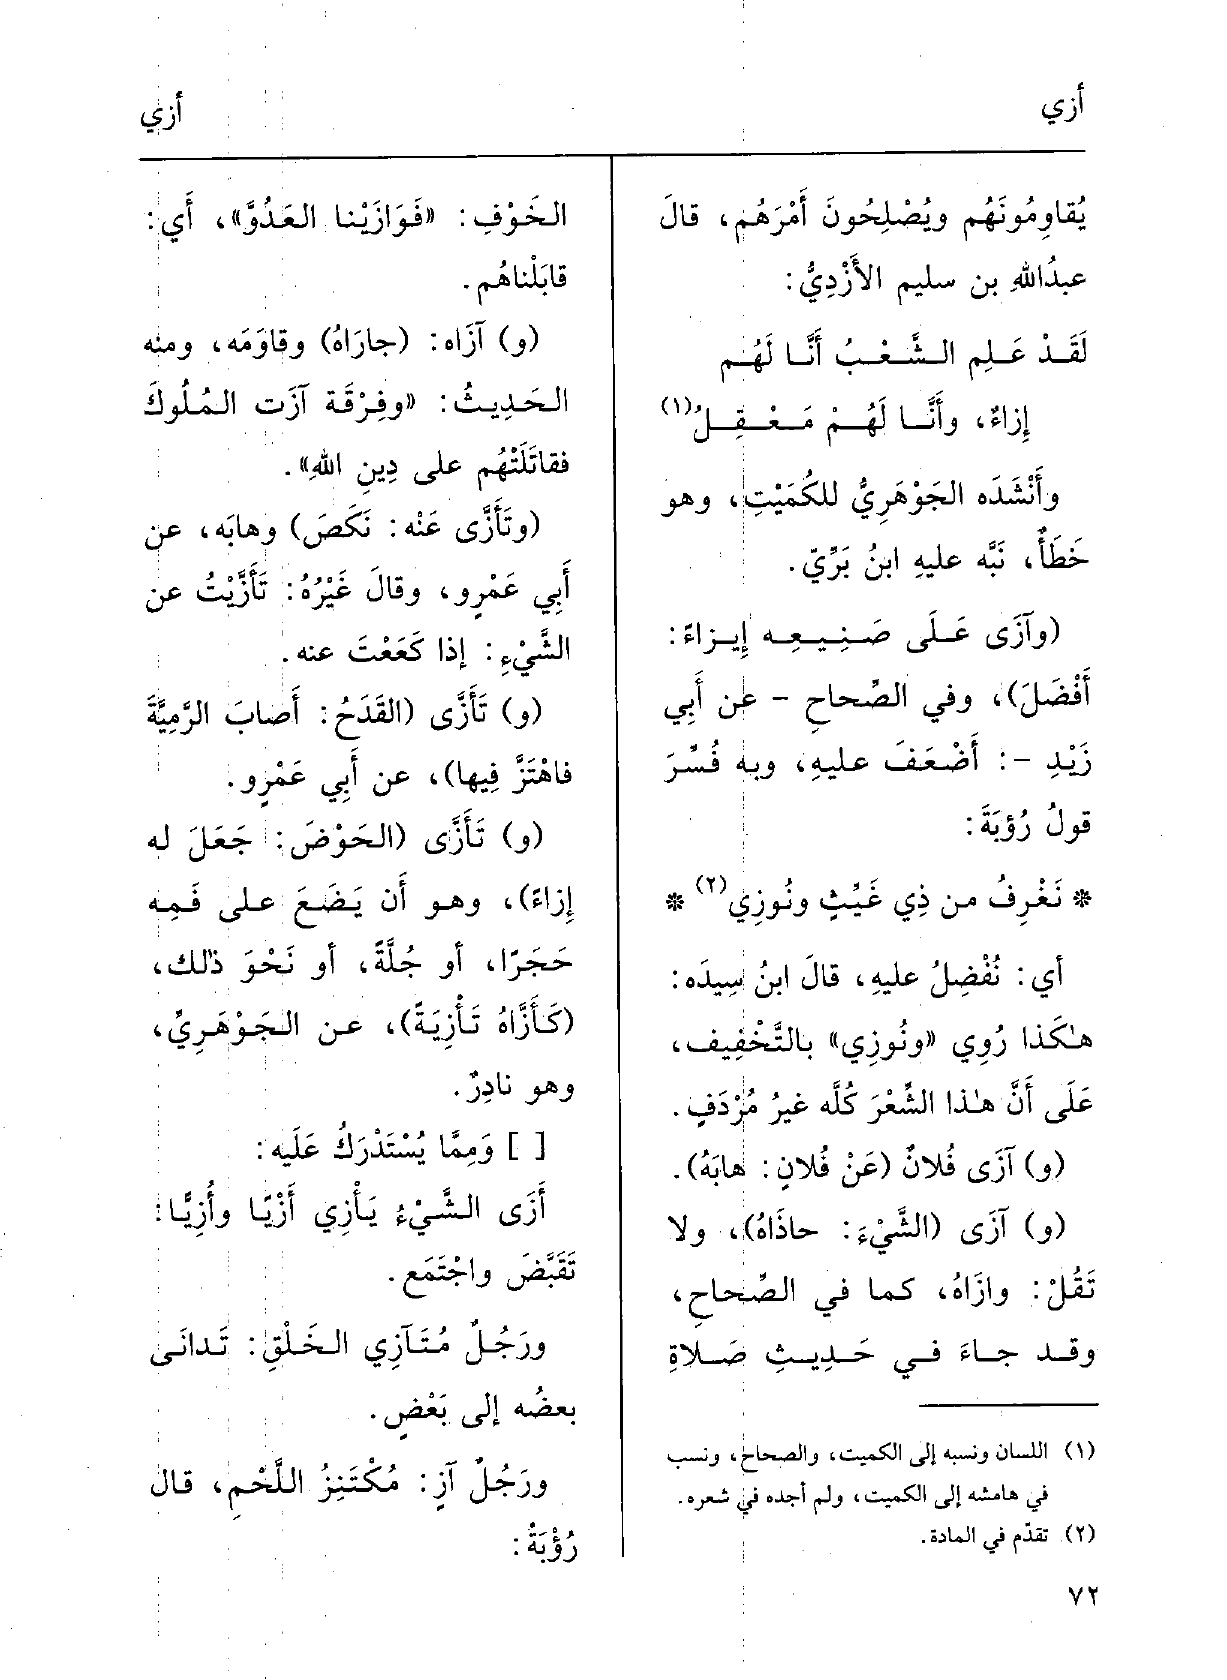 أزي
أزي
يُقاوِمُونَهُم ويُصْلِحُونَ أَمْرَهُم، قالَ
عبدُاللهِ بن سليم الأَزْدِيُّ:
لَقَدْ عَلِم الشَّعْبُ أَنَّا لَهُم
إِزاءٌ، وأَنَّا لَهُمْ مَعْقِلُ(١)
وأَنْشَدَه الجَوْهَرِيُّ للكُمَيْتِ، وهو
خَطَأٌ، نَبَّه عليهِ ابنُ بَرِّيّ.
(وآزَى عَلَى صَنِيعِه إِيزاءً:
أَفْضَلَ)، وفي الصِّحاحِ - عن أَبِي
زَيْدٍ -: أَضْعَفَ عليهِ، وبه فُسِّرَ
قولُ رُؤبَةَ:
* نَغْرِفُ من ذِي غَيِّثٍ ونُوزِي(٢) *
أي: نُفْضِلُ عليهِ، قالَ ابنُ سِيدَه:
هٰكَذا رُوِي «ونُوزِي» بالتَّخْفِيف،
عَلَى أَنَّ هٰذا الشِّعْرَ كُلَّه غيرُ مُرْدَفٍ.
(و) آزَى فُلانٌ (عَنْ فُلانٍ: هابَهُ).
(و) آزَى (الشَّيْءَ: حاذَاهُ)، ولا
تَقُلْ: وازَاهُ، كما في الصِّحاحِ،
وقد جاءَ في حَدِيثِ صَلاةِ
(١) اللسان ونسبه إلى الكميت، والصحاح، ونسب
في هامشه إلى الكميت، ولم أجده في شعره.
(٢) تقدّم في المادة.
الخَوْفِ: «فَوَازَيْنا العَدُوَّ»، أَي:
قابَلْناهُم.
(و) آزَاه: (جارَاهُ) وقاوَمَه، ومنه
الحَدِيثُ: «وفِرْقَة آزَت المُلُوكَ
فقاتَلَتْهُم على دِينِ اللهِ».
(وتَأَزَّى عَنْه: نَكَصَ) وهابَه، عن
أَبِي عَمْرٍو، وقالَ غَيْرُهُ: تَأَزَّيْتُ عن
الشَّيْءِ: إذا كَعَعْتَ عنه.
(و) تَأَزَّى (القَدَحُ: أَصابَ الرَّمِيَّةَ
فاهْتَزَّ فِيها)، عن أَبِي عَمْرٍو.
(و) تَأَزَّى (الحَوْضَ: جَعَلَ له
إِزاءً)، وهو أَن يَضَعَ على فَمِه
حَجَرًا، أو جُلَّةً، أو نَحْوَ ذٰلك،
(كَأَزَّاهُ تَأْزِيَةً)، عن الجَوْهَرِيِّ،
وهو نادِرٌ.
[ ] وَمِمَّا يُسْتَدْرَكُ عَلَيه:
أَزَى الشَّيْءُ يَأْزِي أَزْيًا وأُزِيًّا:
تَقَبَّضَ واجْتَمَع.
ورَجُلٌ مُتَآزِي الخَلْقِ: تَدانَى
بعضُه إلى بَعْضٍ.
ورَجُلٌ آزٍ: مُكْتَنِزُ اللَّحْمِ، قال
رُؤْبَةُ:
٧٢